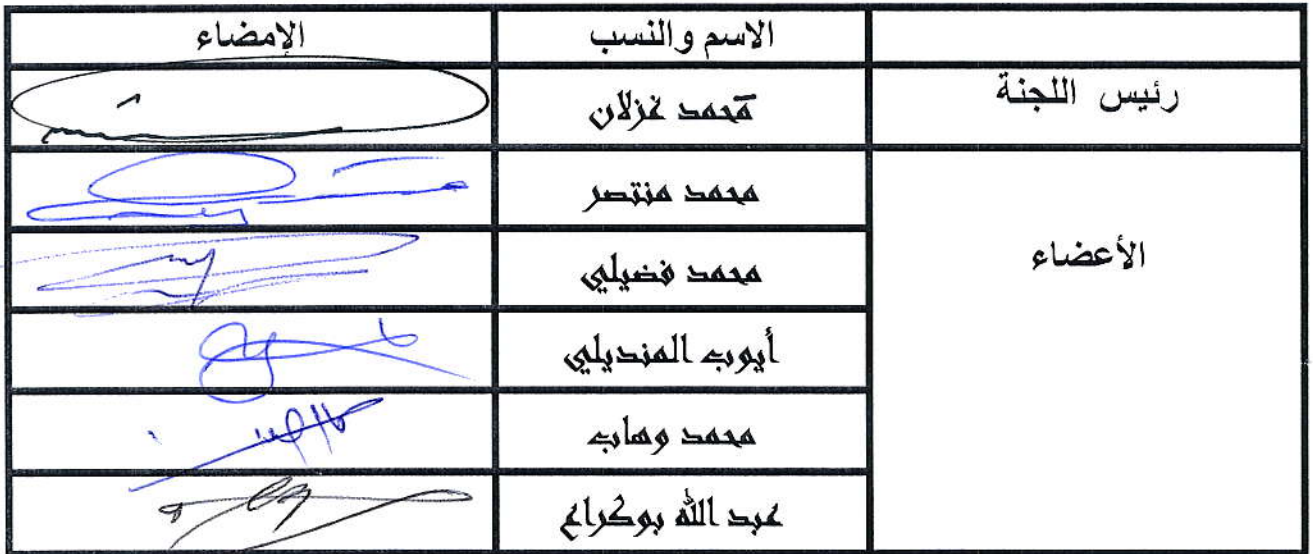 الاسم والنسب الإمضاء
رئيس اللجنة محمد غزلان
الأعضاء محمد منتصر
محمد فضيلي
أيوب المنديلي
محمد وهاب
عبد الله بوكراع